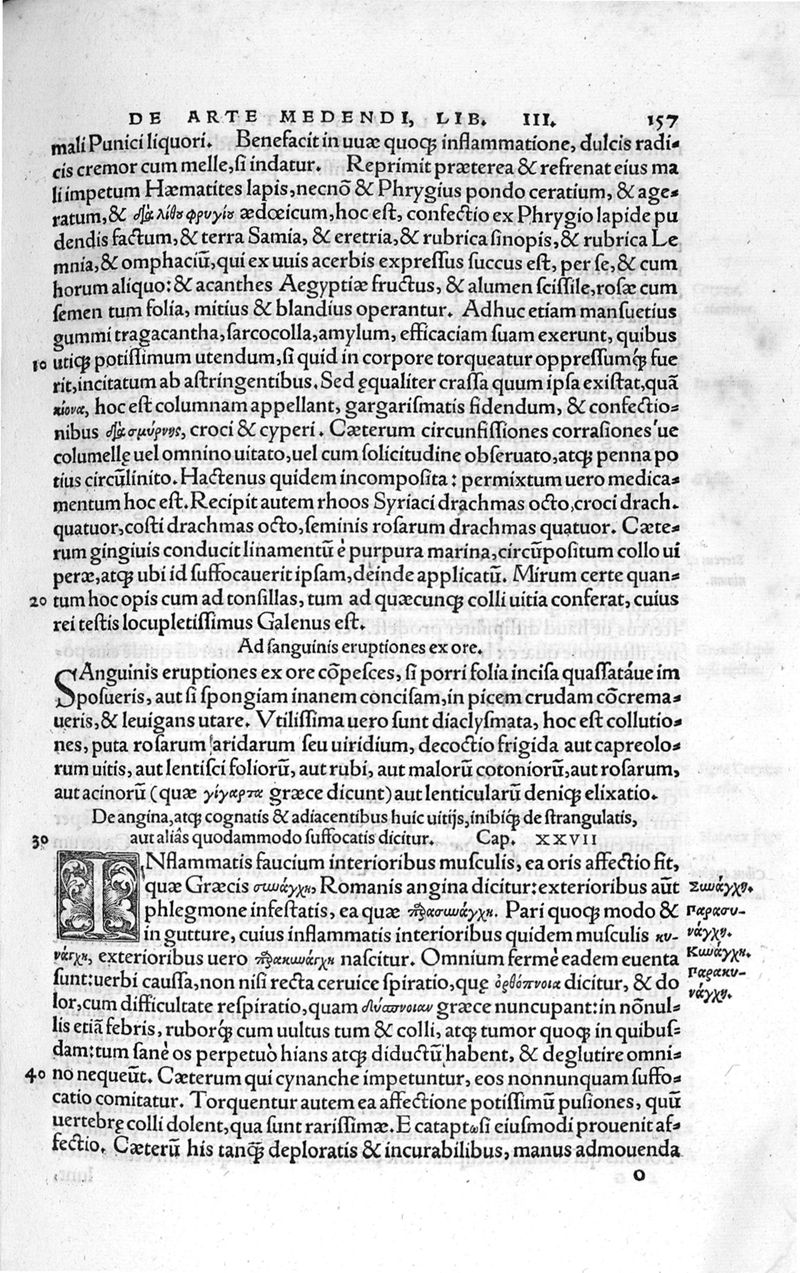 DE ARTE MEDENDI, LIB. III. 157
mali Punici liquori. Benefacit in uuæ quoq; inflammatione, dulcis radi-
cis cremor cum melle, si indatur. Reprimit præterea & refrenat eius ma
li impetum Hæmatites lapis, necnõ & Phrygius pondo ceratium, & age-
ratum, & διὰ λίθου φρυγίου ædœicum, hoc est, confectio ex Phrygio lapide pu
dendis factum, & terra Samia, & eretria, & rubrica sinopis, & rubrica Le
mnia, & omphaciũ, qui ex uuis acerbis expressus succus est, per se, & cum
horum aliquo: & acanthes Aegyptiæ fructus, & alumen scissile, rosæ cum
semen tum folia, mitius & blandius operantur. Adhuc etiam mansuetius
gummi tragacantha, sarcocolla, amylum, efficaciam suam exerunt, quibus
10 utiq; potissimum utendum, si quid in corpore torqueatur oppressumq́; fue
rit, incitatum ab astringentibus. Sed ęqualiter crassa quum ipsa existat, quã
κίονα, hoc est columnam appellant, gargarismatis fidendum, & confectio-
nibus διὰ σμύρνης, croci & cyperi. Cæterum circunfissiones corrasiones'ue
columellę uel omnino uitato, uel cum solicitudine obseruato, atq; penna po
tius circũlinito. Hactenus quidem incomposita: permixtum uero medica-
mentum hoc est. Recipit autem rhoos Syriaci drachmas octo, croci drach.
quatuor, costi drachmas octo, seminis rosarum drachmas quatuor. Cæte-
rum gingiuis conducit linamentũ è purpura marina, circũpositum collo ui
peræ, atq; ubi id suffocauerit ipsam, deinde applicatũ. Mirum certe quan-
20 tum hoc opis cum ad tonsillas, tum ad quæcunq; colli uitia conferat, cuius
rei testis locupletissimus Galenus est.
Ad sanguinis eruptiones ex ore.
SAnguinis eruptiones ex ore cõpesces, si porri folia incisa quassatáue im
posueris, aut si spongiam inanem concisam, in picem crudam cõcrema-
ueris, & leuigans utare. Vtilissima uero sunt diaclysmata, hoc est collutio-
nes, puta rosarum aridarum seu uiridium, decoctio frigida aut capreolo-
rum uitis, aut lentisci foliorũ, aut rubi, aut malorũ cotoniorũ, aut rosarum,
aut acinorũ (quæ γίγαρτα græce dicunt) aut lenticularũ deniq; elixatio.
De angina, atq; cognatis & adiacentibus huic uitijs, inibiq; de strangulatis,
30 aut aliâs quodammodo suffocatis dicitur. Cap. XXVII
INflammatis faucium interioribus musculis, ea oris affectio fit,
quæ Græcis συνάγχη, Romanis angina dicitur: exterioribus aũt
phlegmone infestatis, ea quæ παρασυνάγχη. Pari quoq; modo &
in gutture, cuius inflammatis interioribus quidem musculis κυ-
νάγχη, exterioribus uero παρακυνάγχη nascitur. Omnium fermè eadem euenta
sunt: uerbi caussa, non nisi recta ceruice spiratio, quę ὀρθόπνοια dicitur, & do
lor, cum difficultate respiratio, quam δύσπνοιαν græce nuncupant: in nõnul-
lis etiã febris, ruborq́; cum uultus tum & colli, atq; tumor quoq; in quibus-
dam: tum sanè os perpetuò hians atq; diductũ habent, & deglutire omni-
40 no nequeũt. Cæterum qui cynanche impetuntur, eos nonnunquam suffo-
catio comitatur. Torquentur autem ea affectione potissimũ pusiones, quũ
uertebrę colli dolent, qua sunt rarissimæ. E cataptωsi eiusmodi prouenit af-
fectio. Cæterũ his tanq̃; deploratis & incurabilibus, manus admouenda
o
Συνάγχη.
Παρασυ-
νάγχη.
Κυνάγχη.
Παρακυ-
νάγχη.